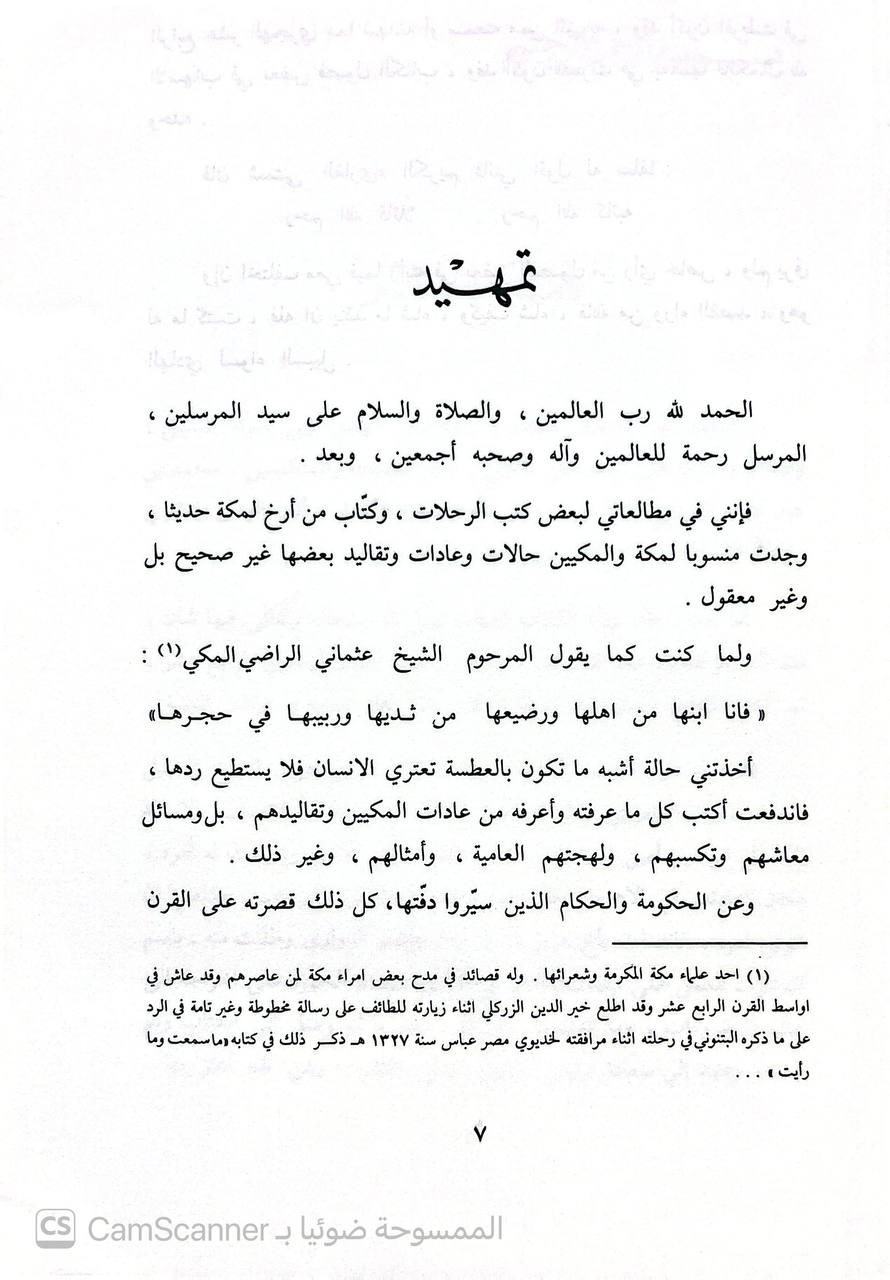 تمهيد
الحمد لله رب العالمين ، والصلاة والسلام على سيد المرسلين ،
المرسل رحمة للعالمين وآله وصحبه أجمعين ، وبعد .
فإنني في مطالعاتي لبعض كتب الرحلات ، وكتّاب من أرخ لمكة حديثا ،
وجدت منسوبا لمكة والمكيين حالات وعادات وتقاليد بعضها غير صحيح بل
وغير معقول .
ولما كنت كما يقول المرحوم الشيخ عثماني الراضي المكي(١) :
« فانا ابنها من اهلها ورضيعها من ثديها وربيبها في حجرها»
أخذتني حالة أشبه ما تكون بالعطسة تعتري الانسان فلا يستطيع ردها ،
فاندفعت أكتب كل ما عرفته وأعرفه من عادات المكيين وتقاليدهم ، بل ومسائل
معاشهم وتكسبهم ، ولهجتهم العامية ، وأمثالهم ، وغير ذلك .
وعن الحكومة والحكام الذين سيّروا دفّتها، كل ذلك قصرته على القرن
(١) احد علماء مكة المكرمة وشعرائها . وله قصائد في مدح بعض امراء مكة لمن عاصرهم وقد عاش في
اواسط القرن الرابع عشر وقد اطلع خير الدين الزركلي اثناء زيارته للطائف على رسالة مخطوطة وغير تامة في الرد
على ما ذكره البتنوني في رحلته اثناء مرافقته لخديوي مصر عباس سنة ١٣٢٧ هـ ذكر ذلك في كتابه «ما سمعت وما
رأيت » ...
٧
CS CamScanner الممسوحة ضوئيا بـ